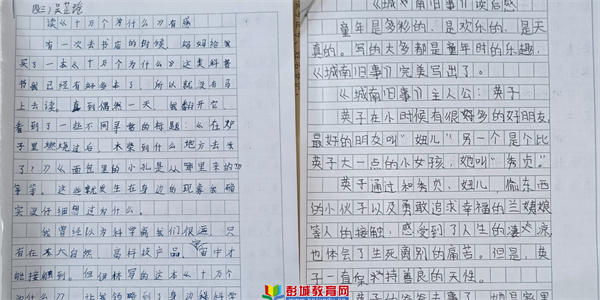 四(三) 吴芷瑶
读《十万个为什么》有感
有一次去书店的时候，妈妈给我
买了一本《十万个为什么》这类科普
书我已经有好多本了，所以就没有马
上去读。直到偶然一天，我翻开它，
看到了一些不同寻常的标题：《在炉
子里燃烧过后，木柴到什么地方去
了？》《面包里的小孔是从哪里来的？》
等等。这些就发生在身边的现象我确
实没仔细想过为什么。
我曾经以为科学离我们很远，只
有在大自然、高科技产品、宇宙中才
能接触到。但但林写的这本《十万个
为什么》，让我领略到了身边科学
《城南旧事》读后感
童年是多彩的，是欢乐的，是天
真的。写的大多都是童年时的乐趣，
《城南旧事》完美写出了。
《城南旧事》主人公：英子
英子在小时候有很好多的好朋友，
最好的朋友叫“妞儿”另一个是个比
英子大一点的小女孩，她叫“秀贞”。
英子通过和秀贞、妞儿，偷东西
的小伙子以及勇敢追求幸福的兰姨娘
等人的接触，感受到了人生的凄凉，
也体会了生死离别的痛苦。但是，英
子一直保持善良的天性。
彭城教育网